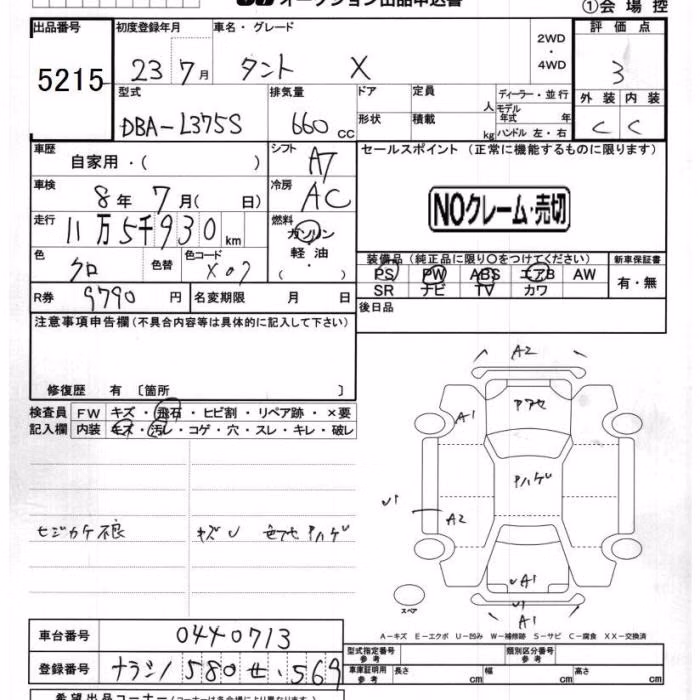 オークション出品申込書
①会場控
出品番号 初度登録年月 車名・グレード 2WD・4WD 評価点
5215 23 7月 タント X 3
型式 排気量 ドア 定員 人 ディーラー・並行 外装 内装
DBA-L375S 660cc 形状 積載 kg モデル年式 年 ハンドル 左・右 C C
車歴 自家用・( ) シフト AT セールスポイント (正常に機能するものに限ります)
車検 8年 7月( 日) 冷房 AC NOクレーム・売切
走行 11万5千930km 燃料 ガソリン 軽油 ・( )
色 クロ 色替 色コード X07 装備品(純正品に限り○をつけてください) 新車保証書
PS PW ABS エアB AW 有・無
SR ナビ TV カワ
R券 9790円 名変期限 月 日 後日品
注意事項申告欄(不具合内容等は具体的に記入して下さい)
修復歴 有 〔箇所 〕
検査員 FW キズ・飛石・ヒビ割・リペア跡・×要
記入欄 内装 キズ・汚レ・コゲ・穴・スレ・キレ・破レ
A2
アセ
A1
ハゲ
U1
A2
ヒジカケ不良 キズU 色アセ ハゲ
UA1
U1
A1
スペア
A-キズ E-エクボ U-凹み W-補修跡 S-サビ C-腐食 XX-交換済
車台番号 0440713
型式指定番号 参考 類別区分番号 参考
登録番号 ナラシノ 580 せ・569
車庫証明用 参考 長さ cm 幅 cm 高さ cm
希望出品コーナー(コーナーは各会場により異なります)